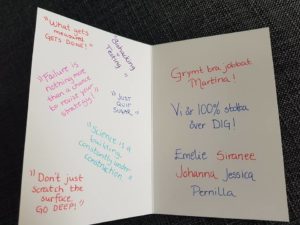 "What gets
measured
GETS DONE!"
Biohacking
Testing
"Failure is
nothing more
than a chance
to revise your
strategy!"
"JUST
QUIT
SUGAR"
"Science is a
building,
constantly under
construction"
"Don't just
scratch the
surface,
GO DEEP!"
Grymt bra jobbat
Martina!
Vi är 100% stolta
över DIG!
Emelie Siranee
Johanna Jessica
Pernilla